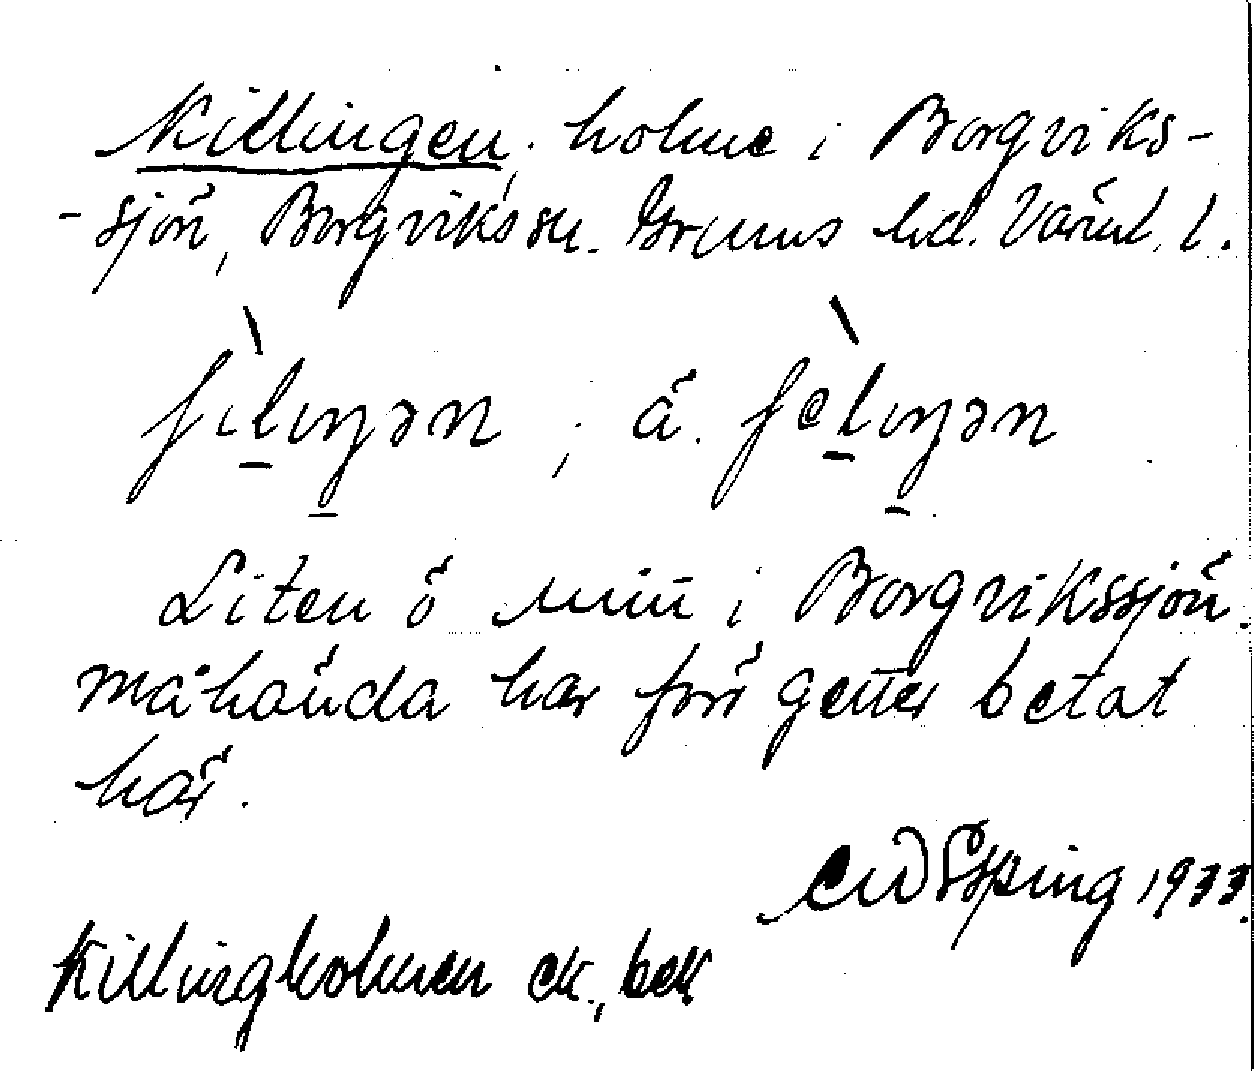 Killingen, holme i Borgviks-
-sjön, Borgviks sn. Grums hd. Värml. l.
ʃìlıŋən, ä. ʃèlıŋən
Liten ö mitt i Borgvikssjön.
måhända har förr getter betat
här.
1933.
Killingholmen ek., bek